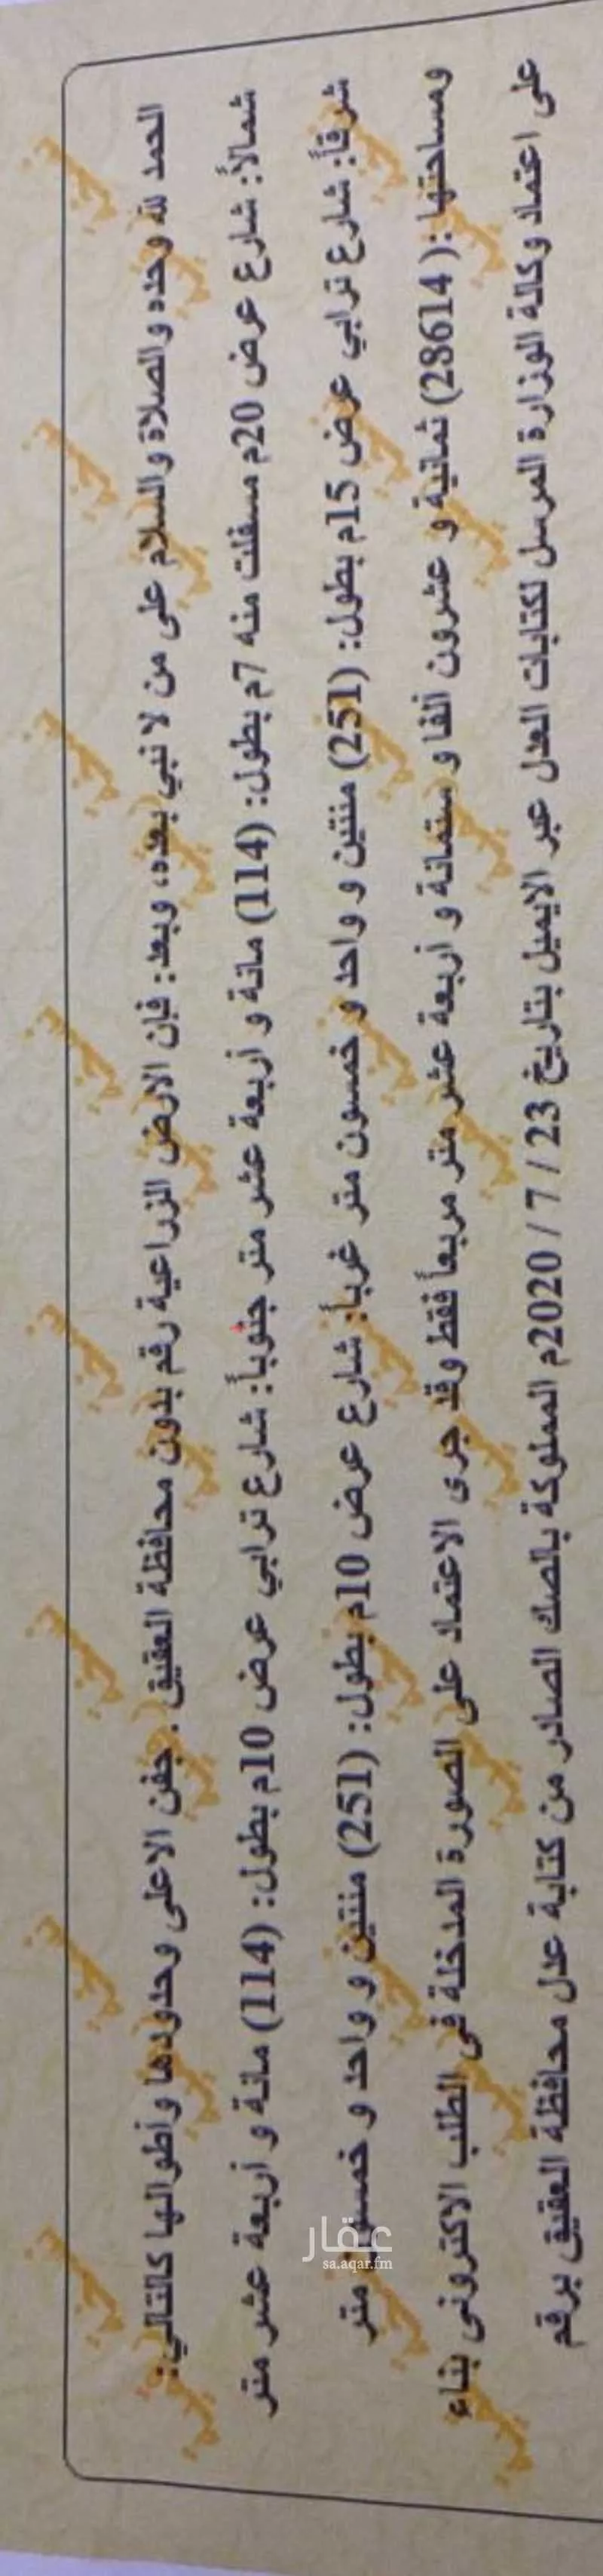 الحمد لله وحده والصلاة والسلام على من لا نبي بعده، وبعد: فإن الارض الزراعية رقم بدون محافظة العقيق . جفن الاعلى وحدودها وأطوالها كالتالي:
شمالاً: شارع عرض 20م مسفلت منه 7م بطول: (114) مائة و أربعة عشر متر جنوباً: شارع ترابي عرض 10م بطول: (114) مائة و أربعة عشر متر
شرقاً: شارع ترابي عرض 15م بطول: (251) مئتين و واحد و خمسون متر غرباً: شارع عرض 10م بطول: (251) مئتين و واحد و خمسون متر
ومساحتها : (28614) ثمانية و عشرون ألفا و ستمائة و أربعة عشر متر مربعاً فقط وقد جرى الاعتماد على الصورة المدخلة في الطلب الاكتروني بناء
على اعتماد وكالة الوزارة المرسل لكتابات العدل عبر الايميل بتاريخ 23 / 7 / 2020م المملوكة بالصك الصادر من كتابة عدل محافظة العقيق برقم
عقار
sa.aqar.fm